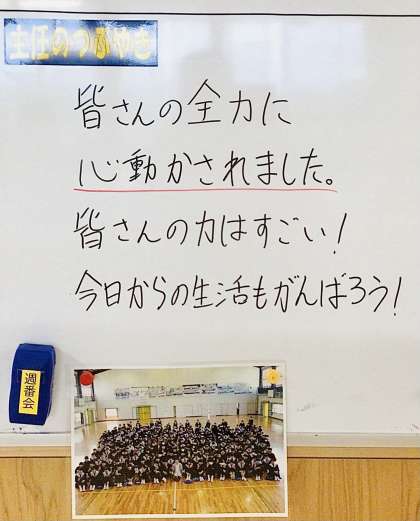 主任のつぶやき
皆さんの全力に
心動かされました。
皆さんの力はすごい!
今日からの生活もがんばろう!
週番会